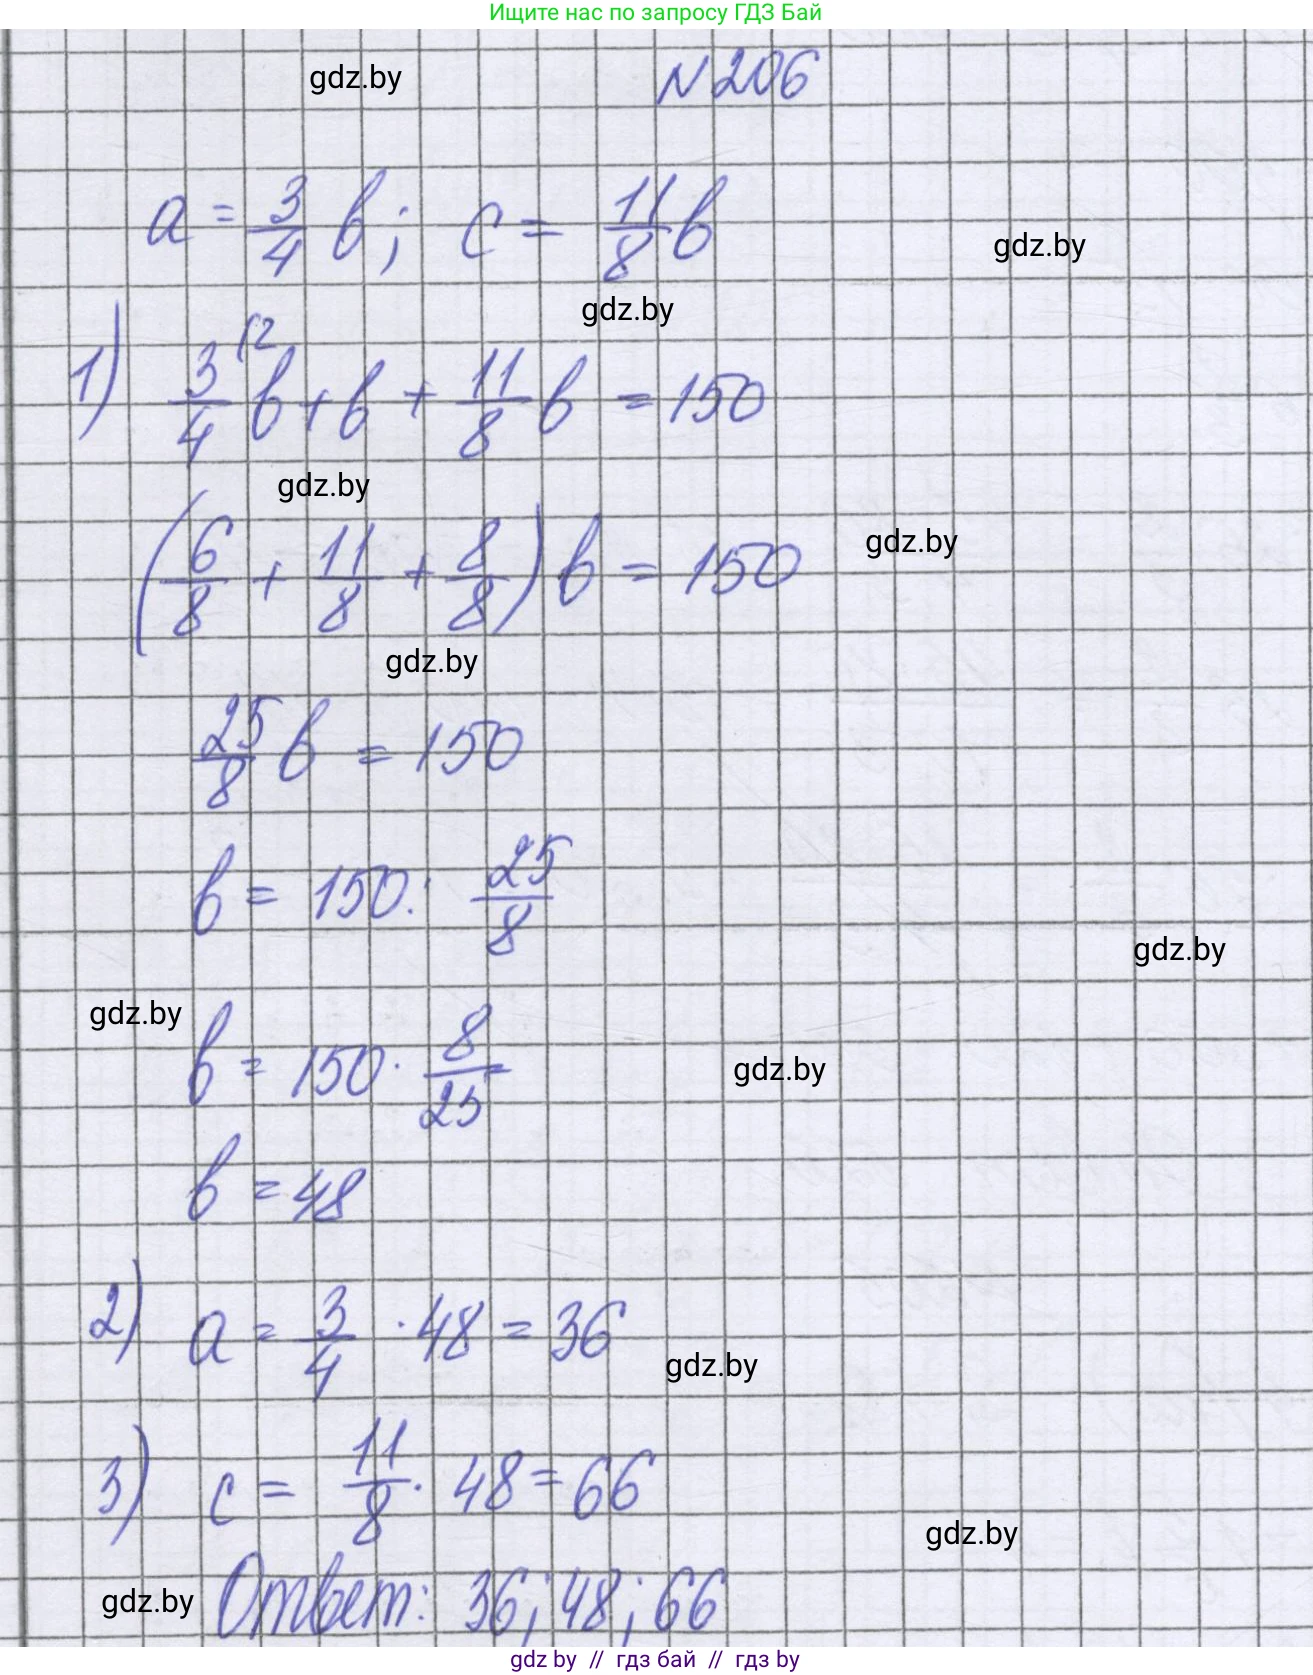 Ищите нас по запросу ГДЗ Бай
gdz.by
N 206
a = 3/4 b; c = 11/8 b
gdz.by
gdz.by
1) 3/4 (2 b + b + 11/8 b = 150
gdz.by
gdz.by
(6/8 + 11/8 + 8/8) b = 150
gdz.by
25/8 b = 150
b = 150 : 25/8
gdz.by
gdz.by
b = 150 · 8/25
gdz.by
b = 48
2) a = 3/4 · 48 = 36
gdz.by
3) c = 11/8 · 48 = 66
gdz.by
gdz.by
Ответ: 36; 48; 66
gdz by // гдз бай // гдз by